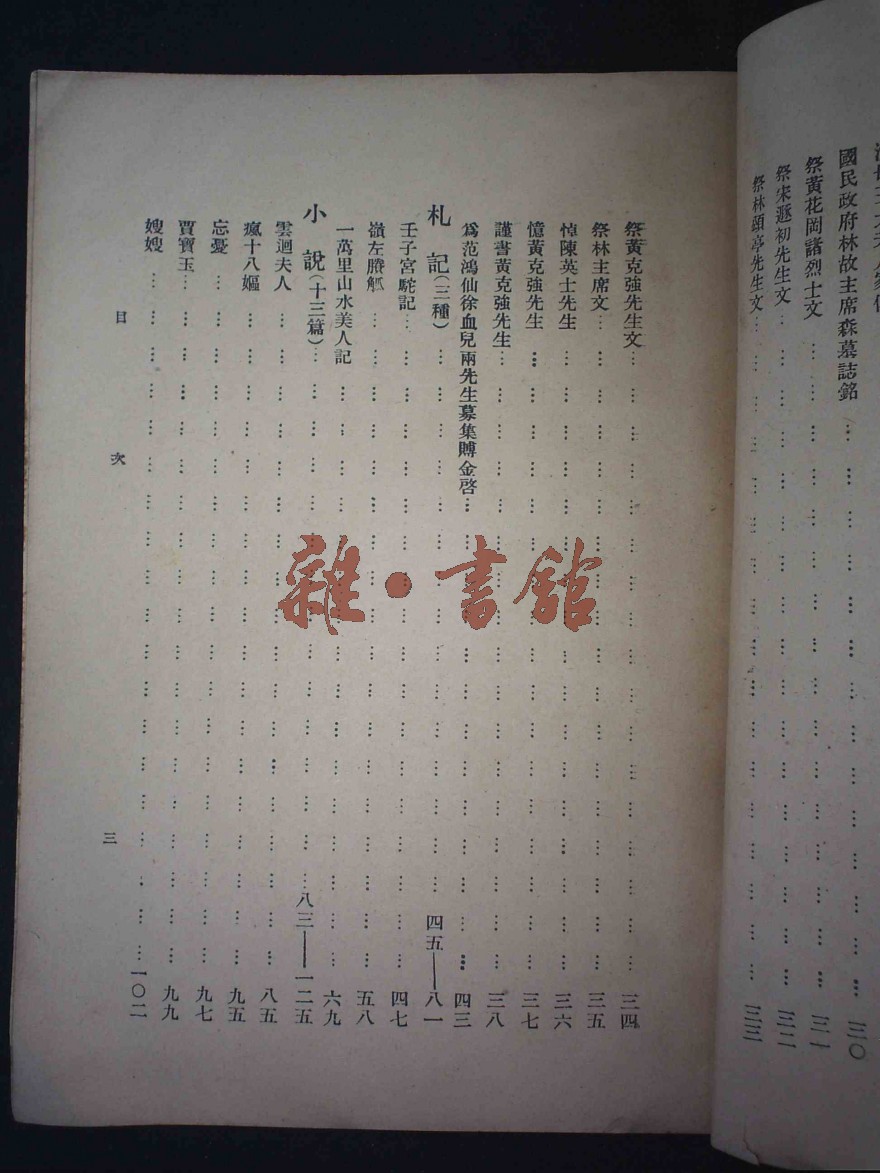 國民政府林故主席森墓誌銘 … 三〇
祭黃花岡諸烈士文 … 三一
祭宋遯初先生文 … 三二
祭林頌亭先生文 … 三三
祭黃克強先生文 … 三四
祭林主席文 … 三五
悼陳英士先生 … 三六
憶黃克強先生 … 三七
謹書黃克強先生 … 三八
爲范鴻仙徐血兒兩先生募集賻金啓 … 四三
札 記(三種) … 四五——八一
壬子宮駝記 … 四七
嶺左賸觚 … 五八
一萬里山水美人記 … 六九
小 說(十三篇) … 八三——一二五
雲迴夫人 … 八五
瘋十八嫗 … 九五
忘憂 … 九七
賈寶玉 … 九九
嫂嫂 … 一〇二
目 次 三
雜·書館